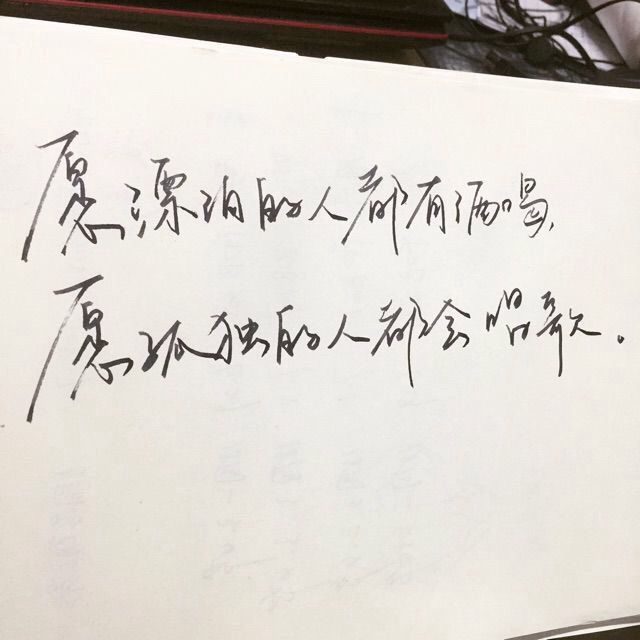 愿漂泊的人都有酒喝，
愿孤独的人都会唱歌。